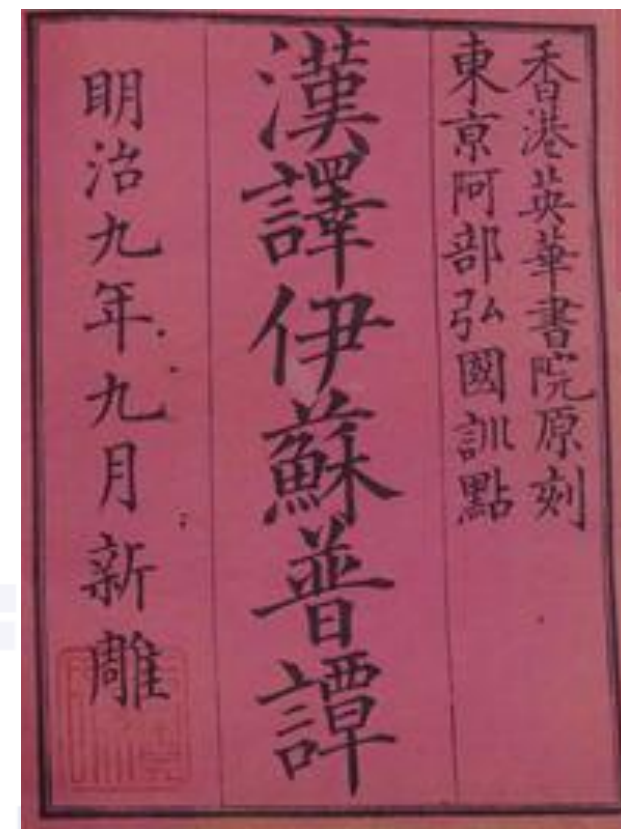 香港英華書院原刻
東京阿部弘國訓點
漢譯伊蘇普譚
明治九年九月新雕